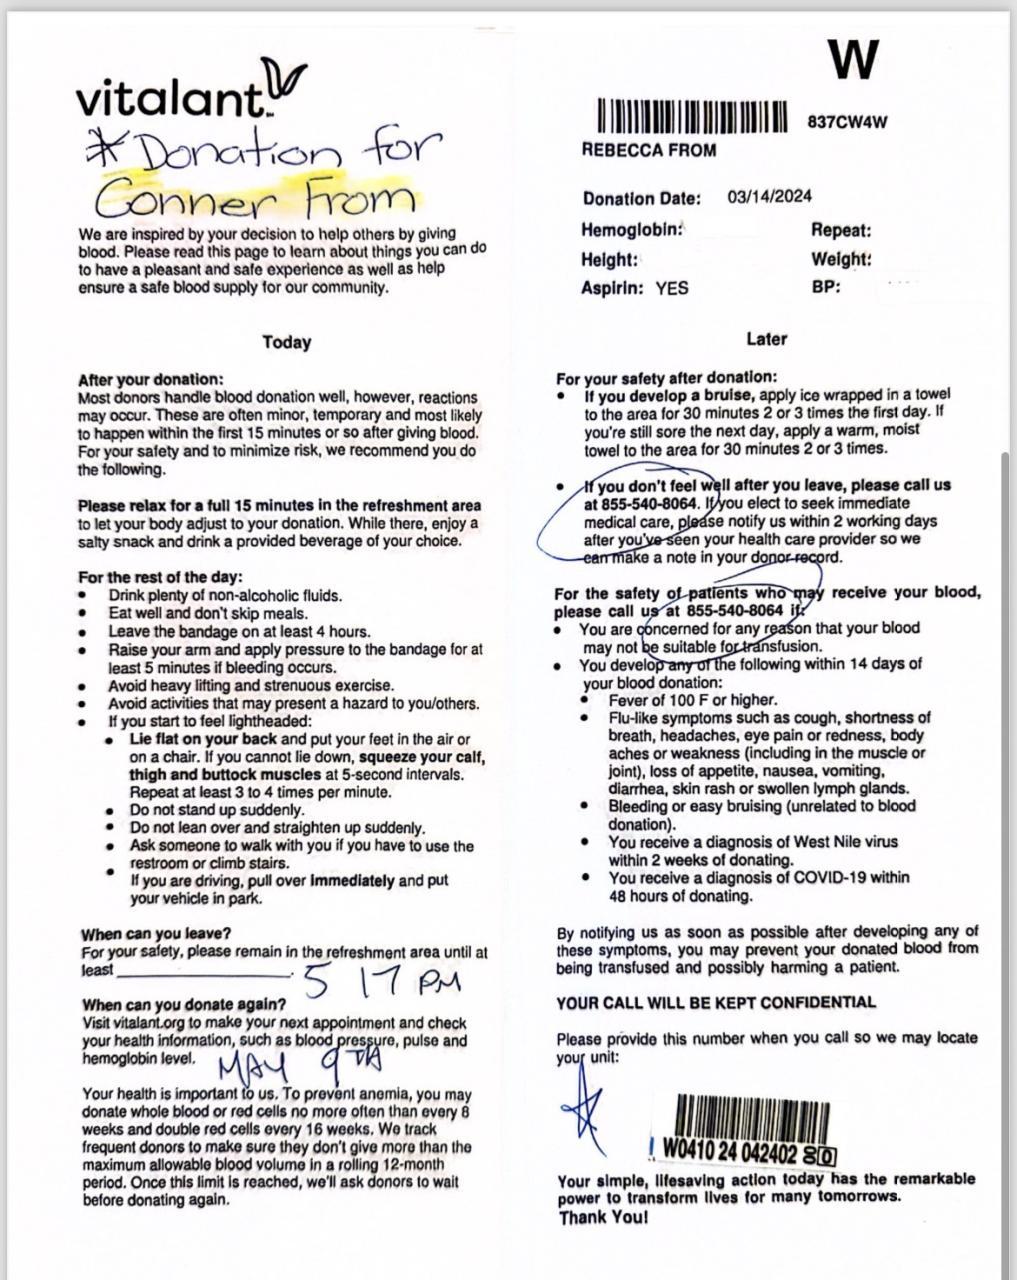 vitalant
* Donation for
Conner From
We are inspired by your decision to help others by giving
blood. Please read this page to learn about things you can do
to have a pleasant and safe experience as well as help
ensure a safe blood supply for our community.
Today
After your donation:
Most donors handle blood donation well, however, reactions
may occur. These are often minor, temporary and most likely
to happen within the first 15 minutes or so after giving blood.
For your safety and to minimize risk, we recommend you do
the following.
Please relax for a full 15 minutes in the refreshment area
to let your body adjust to your donation. While there, enjoy a
salty snack and drink a provided beverage of your choice.
For the rest of the day:
• Drink plenty of non-alcoholic fluids.
• Eat well and don't skip meals.
• Leave the bandage on at least 4 hours.
• Raise your arm and apply pressure to the bandage for at
least 5 minutes if bleeding occurs.
• Avoid heavy lifting and strenuous exercise.
• Avoid activities that may present a hazard to you/others.
• If you start to feel lightheaded:
• Lie flat on your back and put your feet in the air or
on a chair. If you cannot lie down, squeeze your calf,
thigh and buttock muscles at 5-second intervals.
Repeat at least 3 to 4 times per minute.
• Do not stand up suddenly.
• Do not lean over and straighten up suddenly.
• Ask someone to walk with you if you have to use the
restroom or climb stairs.
• If you are driving, pull over immediately and put
your vehicle in park.
When can you leave?
For your safety, please remain in the refreshment area until at
least ____________________. 5 17 PM
When can you donate again?
Visit vitalant.org to make your next appointment and check
your health information, such as blood pressure, pulse and
hemoglobin level. MAY 9TH
Your health is important to us. To prevent anemia, you may
donate whole blood or red cells no more often than every 8
weeks and double red cells every 16 weeks. We track
frequent donors to make sure they don't give more than the
maximum allowable blood volume in a rolling 12-month
period. Once this limit is reached, we'll ask donors to wait
before donating again.
W
837CW4W
REBECCA FROM
Donation Date: 03/14/2024
Hemoglobin: Repeat:
Height: Weight:
Aspirin: YES BP:
Later
For your safety after donation:
• If you develop a bruise, apply ice wrapped in a towel
to the area for 30 minutes 2 or 3 times the first day. If
you're still sore the next day, apply a warm, moist
towel to the area for 30 minutes 2 or 3 times.
• If you don't feel well after you leave, please call us
at 855-540-8064. If you elect to seek immediate
medical care, please notify us within 2 working days
after you've seen your health care provider so we
can make a note in your donor record.
For the safety of patients who may receive your blood,
please call us at 855-540-8064 if:
• You are concerned for any reason that your blood
may not be suitable for transfusion.
• You develop any of the following within 14 days of
your blood donation:
• Fever of 100 F or higher.
• Flu-like symptoms such as cough, shortness of
breath, headaches, eye pain or redness, body
aches or weakness (including in the muscle or
joint), loss of appetite, nausea, vomiting,
diarrhea, skin rash or swollen lymph glands.
• Bleeding or easy bruising (unrelated to blood
donation).
• You receive a diagnosis of West Nile virus
within 2 weeks of donating.
• You receive a diagnosis of COVID-19 within
48 hours of donating.
By notifying us as soon as possible after developing any of
these symptoms, you may prevent your donated blood from
being transfused and possibly harming a patient.
YOUR CALL WILL BE KEPT CONFIDENTIAL
Please provide this number when you call so we may locate
your unit:
W0410 24 042402 80
Your simple, lifesaving action today has the remarkable
power to transform lives for many tomorrows.
Thank You!